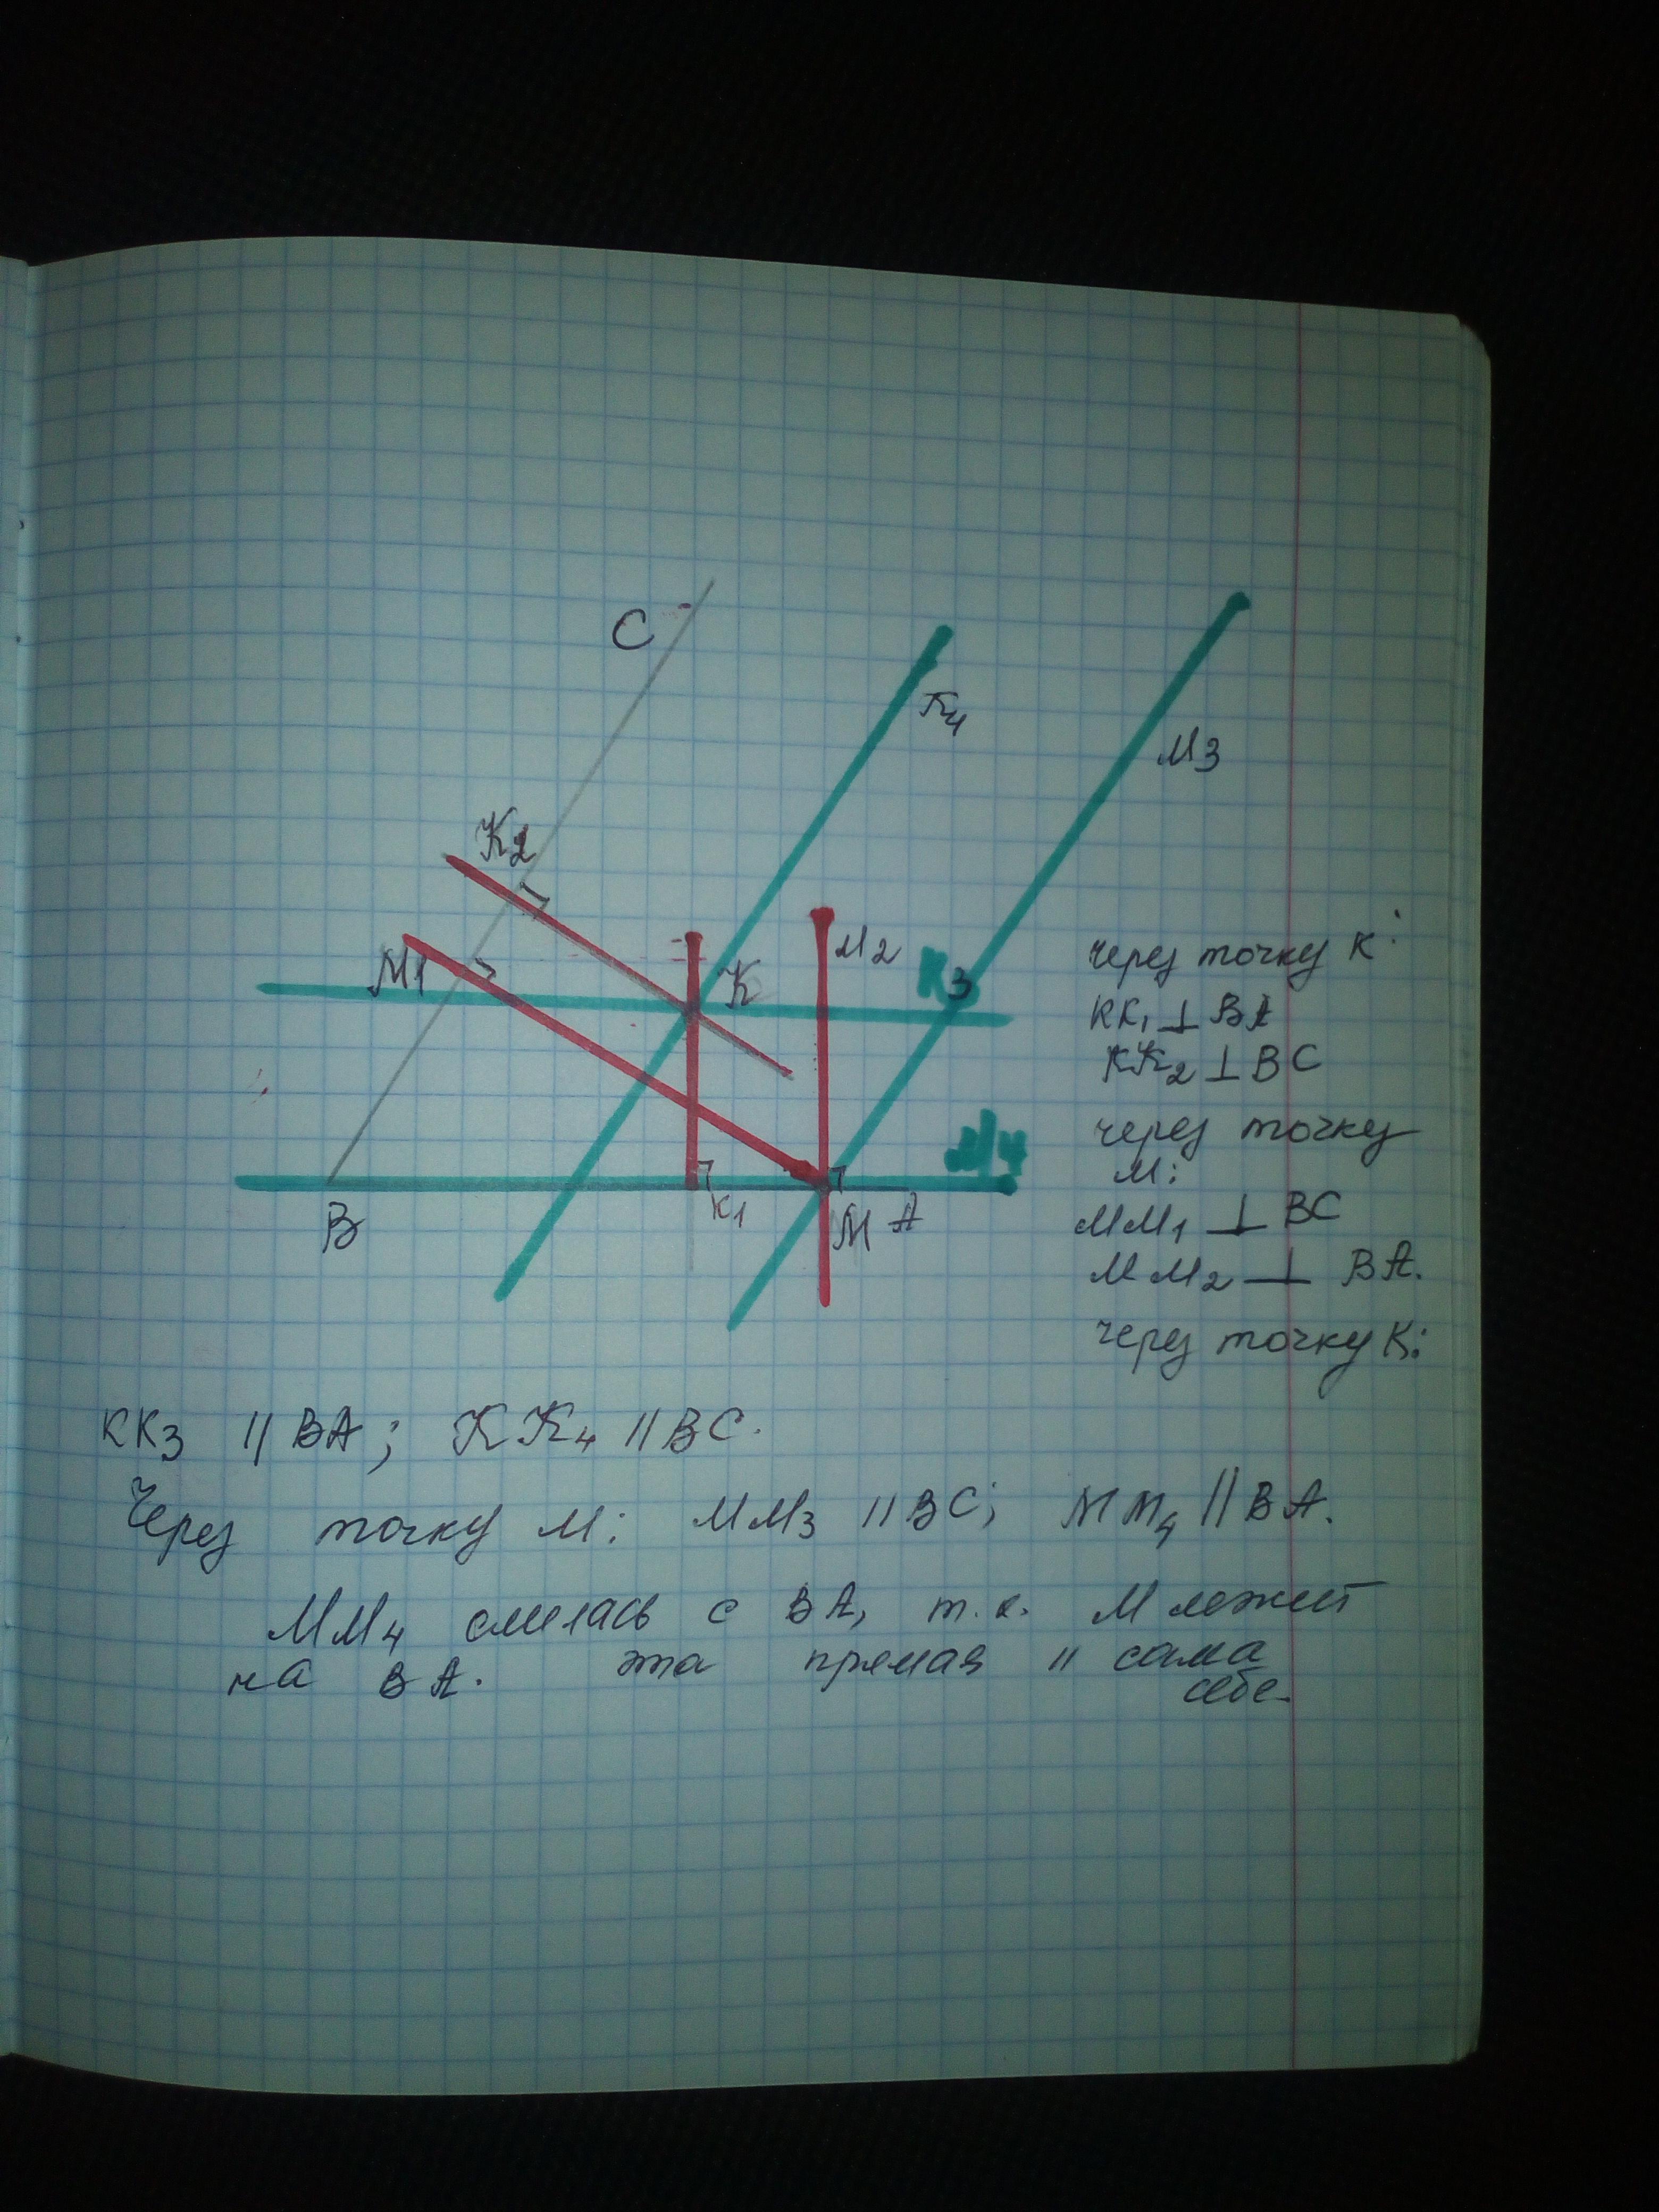 C
K4
M3
K2
M1
K
M2
K3
M4
B
K1
M
A
через точку K:
KK1 ⊥ BA
KK2 ⊥ BC
через точку
M:
MM1 ⊥ BC
MM2 ⊥ BA.
через точку K:
KK3 || BA; KK4 || BC.
Через точку M: MM3 || BC; MM4 || BA.
MM4 слилась с BA, т.к. M лежит
на BA. эта прямая || сама
себе.